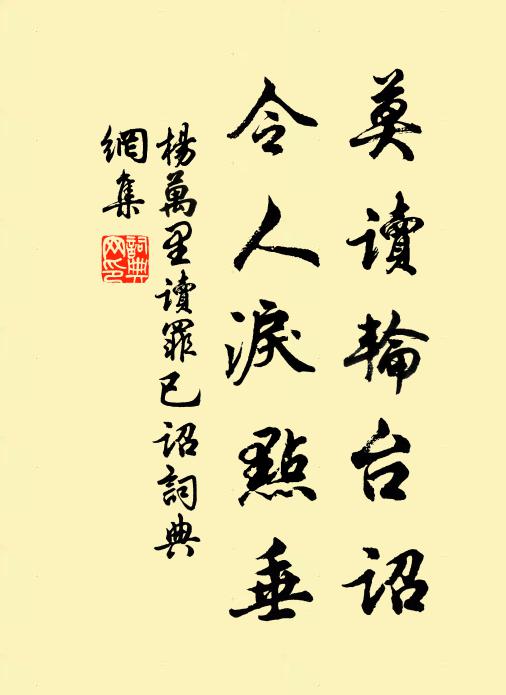 莫讀輪台詔
令人淚點垂
楊萬里讀罪已詔詞典
網集
詞典网印